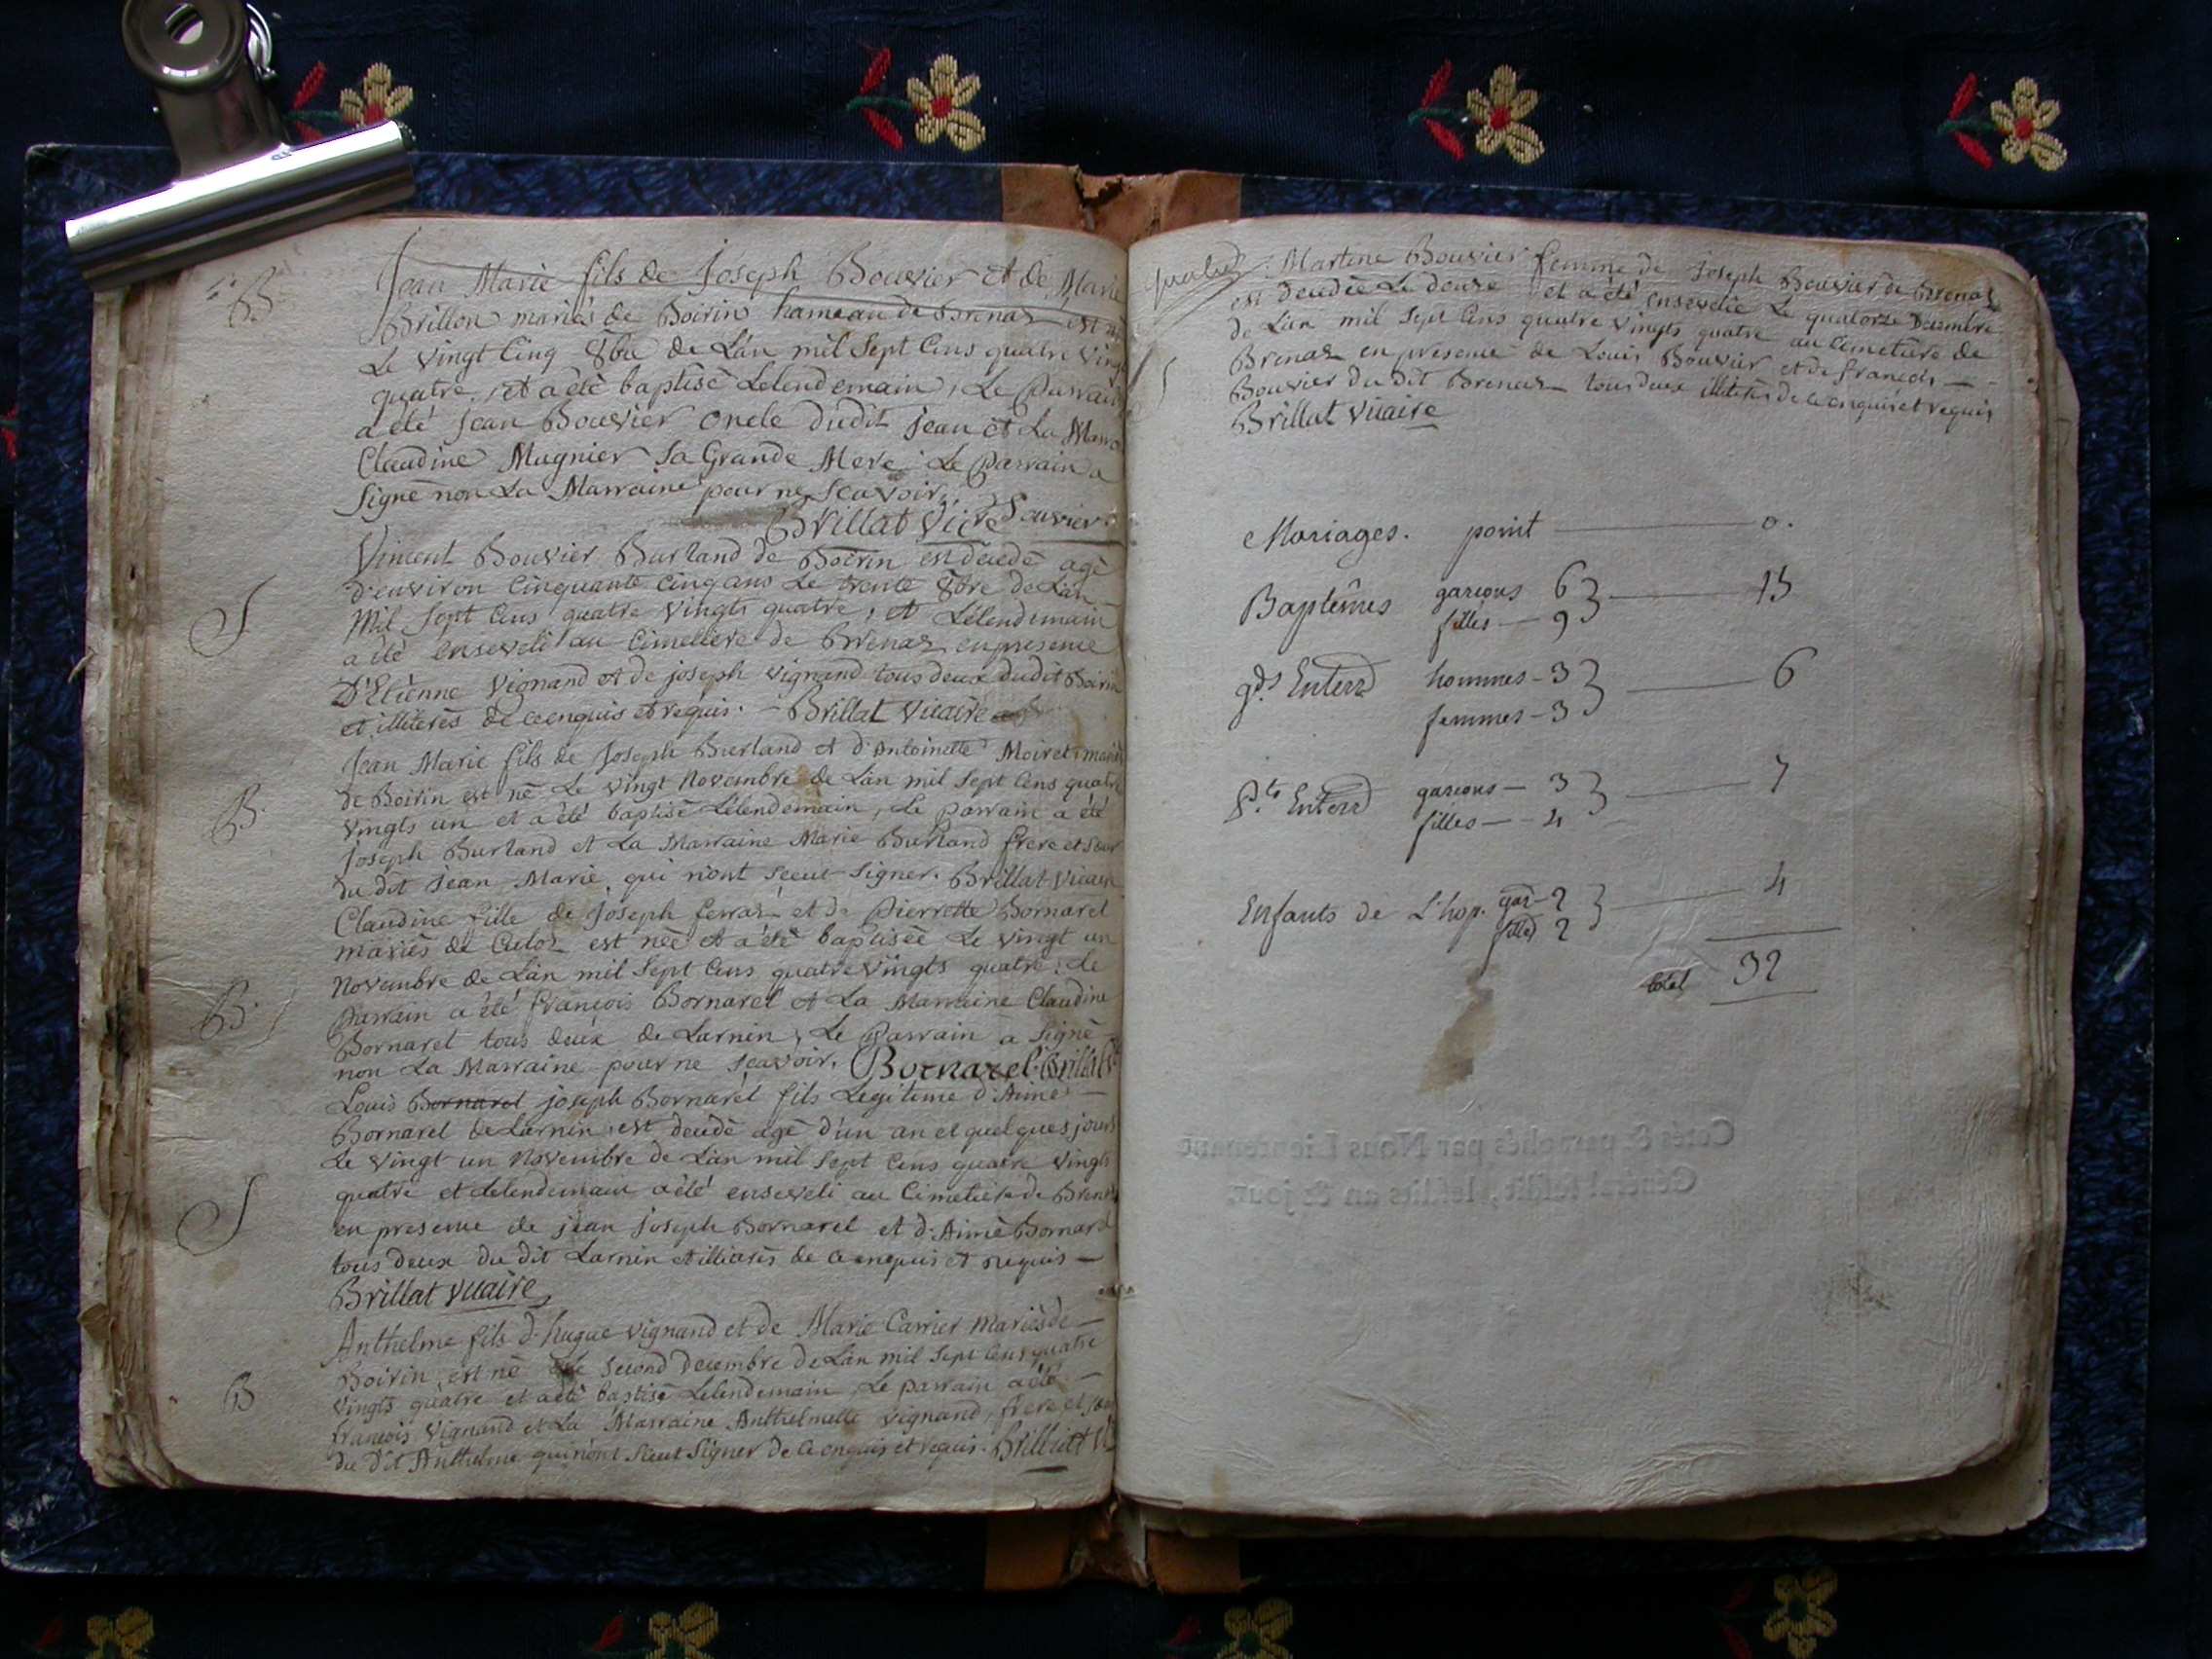 B.
Jean Marie fils de Joseph Bouvier et de Marie
Brillon mariés de Boirin hameau de Brenaz est né
Le vingt Cinq 8bre de L'an mil Sept Cens quatre Vingt
quatre, et a été baptisé Lelendemain, Le Parrain
a été Jean Bouvier Oncle dudit Jean et La Marra
Claudine Mugnier Sa Grande Mere. Le Parrain a
Signé non La Marraine pour ne Scavoir.
Brillat Vicre Bouvier
S
Vincent Bouvier Burland de Boirin est decedé agé
d'environ Cinquante Cinq ans Le trente 8bre de L'an
Mil Sept Cens quatre vingts quatre, et Lelendemain
a été enseveli au Cimettere de Brenaz en presence
D'Etienne Vignand et de joseph Vignand tous deux dudit Boirin
et illiterés de ce enquis et requis. - Brillat Vicaire
B.
Jean Marie fils de Joseph Burland et d'Antoinette Moiret mariés
de Boirin est né Le vingt Novembre de L'an mil Sept Cens quatre
vingts un et a été baptisé Lelendemain, Le parrain a été
Joseph Burland et La Marraine Marie Burland frere et Sœur
du dit Jean Marie, qui n'ont Sceut Signer. Brillat Vicaire
B.
Claudine fille de Joseph ferraz et de Pierrette Bornarel
mariés de Culoz est née et a été baptisée Le vingt un
Novembre de L'an mil Sept Cens quatre Vingts quatre; Le
Parrain a été françois Bornarel et La Marraine Claudine
Bornarel tous deux de Larnin, Le Parrain a Signé
non La Marraine pour ne Scavoir. Bornarel. Brillat
S
Louis Bornarel joseph Bornarel fils Legitime d'Aimé
Bornarel de Larnin, est decedé agé d'un an et quelques jours
Le vingt un Novembre de L'an mil Sept Cens quatre Vingts
quatre et Lelendemain a été enseveli au Cimetiere de Brenaz
en presence de jean joseph Bornarel et d'Aimé Bornarel
tous deux du dit Larnin et illiterés de ce enquis et requis -
Brillat vicaire
B
Anthelme fils d'hugue vignand et de Marie Carrier Mariés de -
Boirin, est né Le Second Decembre de L'an mil Sept Cens quatre
Vingts quatre et a été baptisé Lelendemain, Le parrain a été -
françois Vignand et La Marraine Anthelmette Vignand, frere et Sœur
du Dit Anthelme qui n'ont Sceut Signer de ce enquis et requis. Brillat
S
Martine Bouvier femme de Joseph Bouvier de Brenaz
est decedée Le douze et a été ensevelie Le quatorze Decembre
de L'an mil Sept Cens quatre Vingts quatre au Cimetiere de
Brenaz en presence de Louis Bouvier et de francois -
Bouvier du dit Brenaz tous deux illiterés de ce enquis et requis
Brillat Vicaire
Mariages. point 0.
Baptêmes garçons 6 15
filles 9
gds Enterrs hommes - 3 6
femmes - 3
pts Enterrs garcons - 3 7
filles - 4
Enfants de L'hop. gar - 2 4
filles 2
total 32
Cotés & paraphés par Nous Lieutenant
Général susdit, lesdits an & jour.